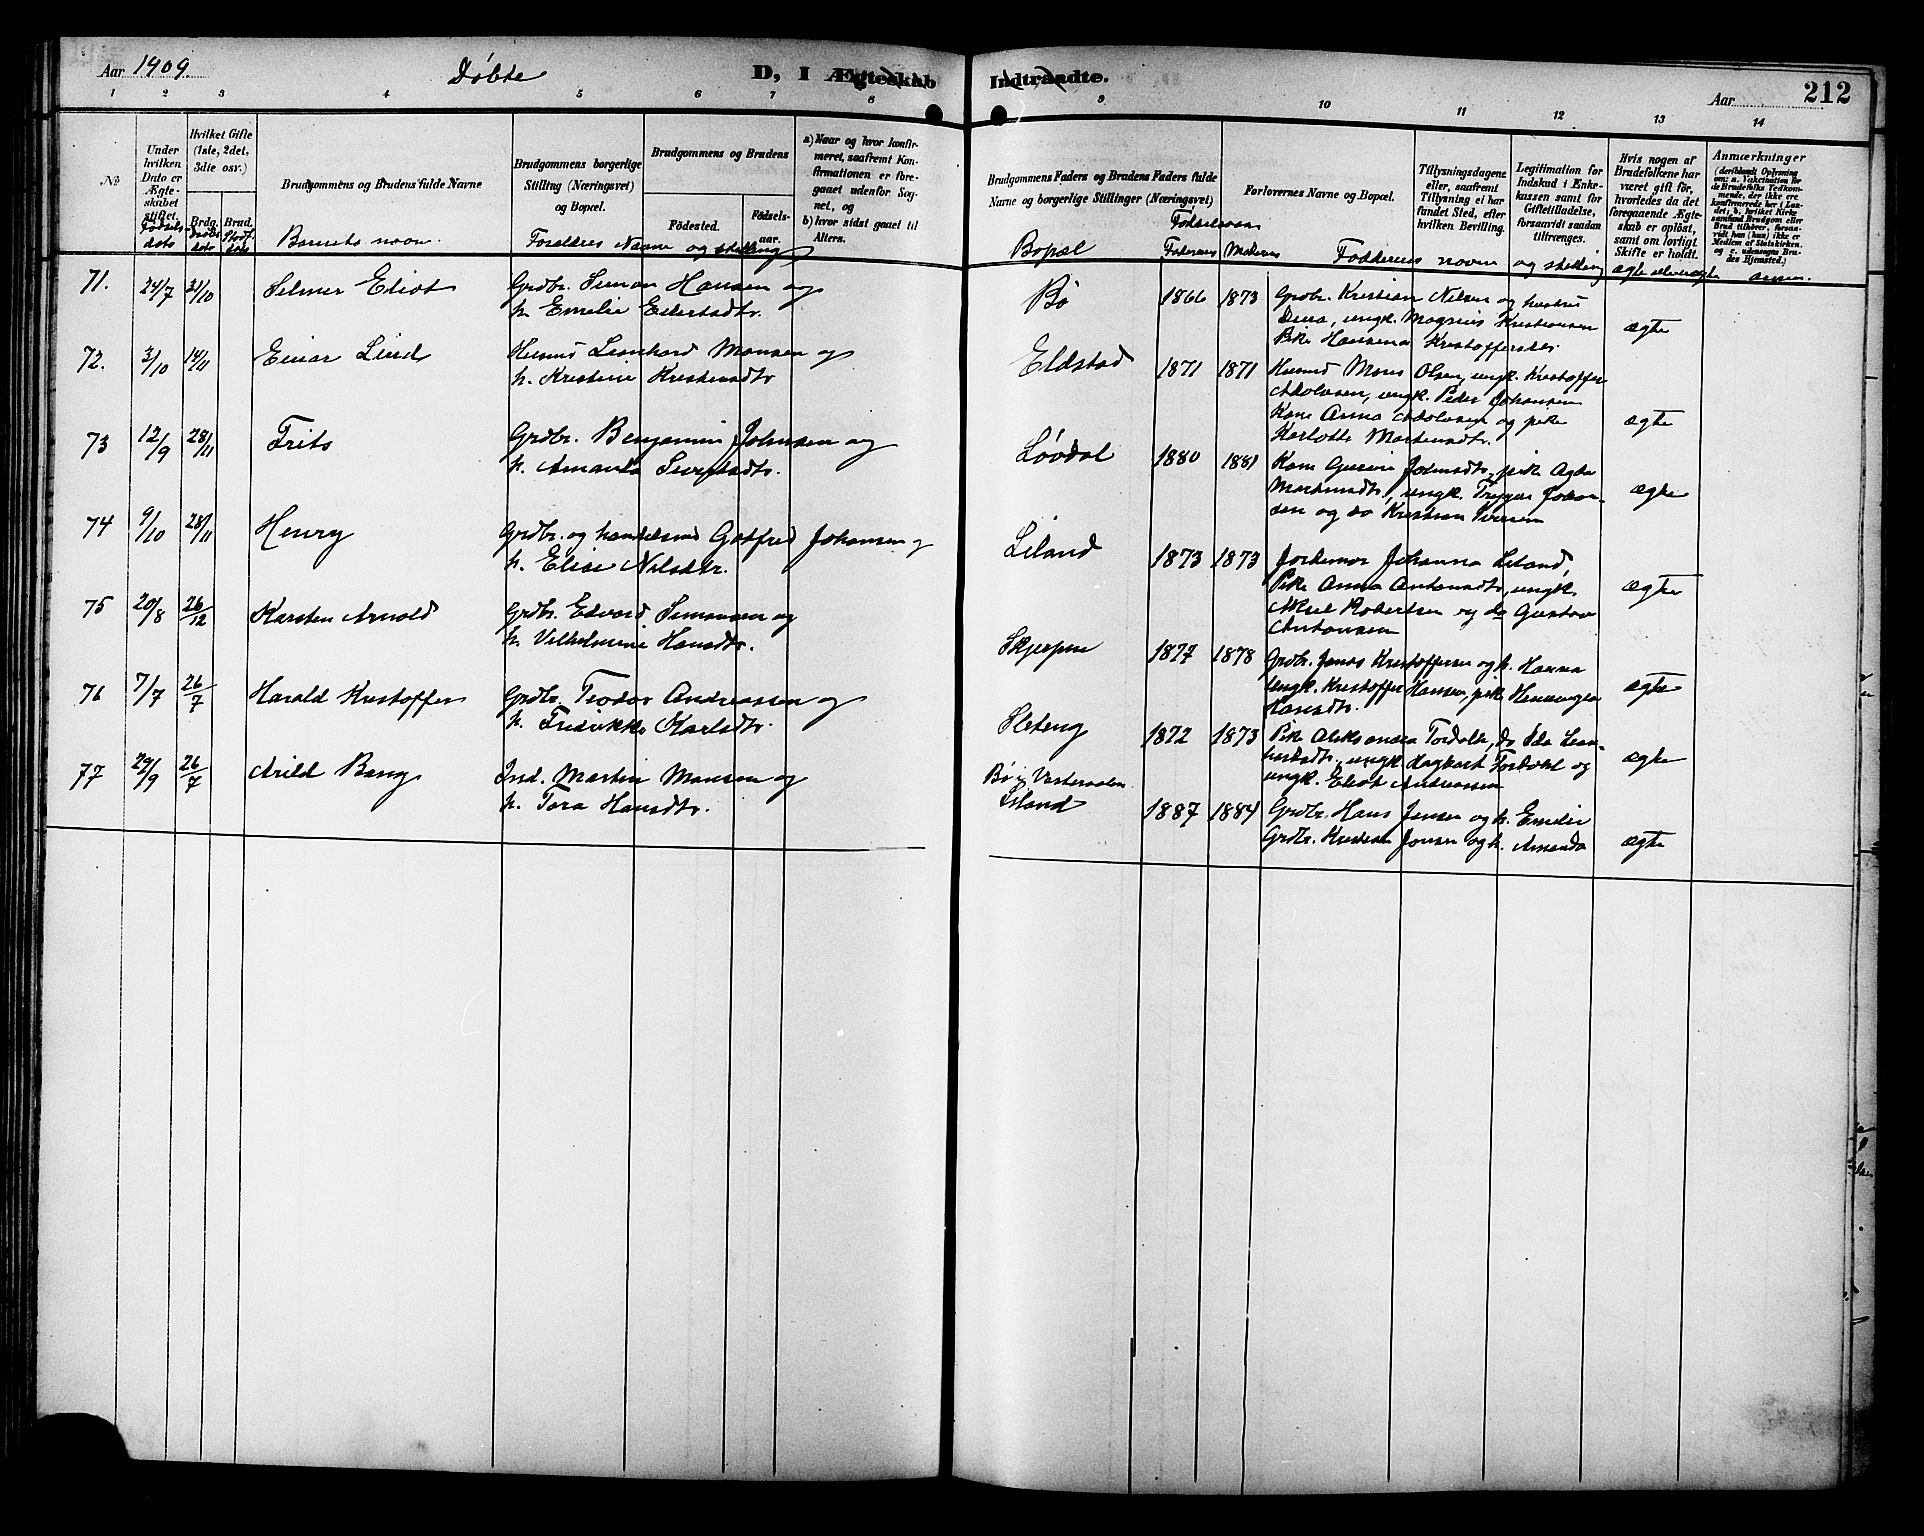 Aar 1909. Døbte D, I Ægteskab Indtraadte. Aar 212
1 2 3 4 5 6 7 8 9 10 11 12 13 14
№
Under hvilken Dato er Ægteskabet stiftet.
Fødselsdato
Hvilket Gifte (1ste, 2det, 3die osv.)
Brdg. Brud.
Daabsdato
Brudgommens og Brudens fulde Navne
Barnets navn.
Brudgommens borgerlige Stilling (Næringsvei) og Bopæl.
Forældres Navne og stilling
Brudgommens og Brudens
Födested. Födselsaar.
a) Naar og hvor konfirmeret, saafremt Konfirmationen er foregaaet udenfor Sognet, og
b) hvor sidst gaaet til Alters.
Brudgommens Faders og Brudens Faders fulde Navne og borgerlige Stillinger (Næringsvei)
Bopæl
Fødselsaar
Faderens Moderens
Forlovernes Navne og Bopæl.
Faddernes navne og stilling
Tillysningsdagene eller, saafremt Tillysning ei har fundet Sted, efter hvilken Bevilling.
Legitimation for Indskud i Enkekassen samt for Giftetilladelse, forsaavidt saadan tiltrænges.
Hvis nogen af Brudefolkene har været gift för, hvorledes da det foregaaende Ægteskab er oplöst, samt om lovligt Skifte er holdt.
ægte eller uægte
Anmærkninger
71. 24/7 31/10 Selmer Eliot
Grdbr. Simon Hansen og
h. Emelie Eilertsdtr.
Bø 1866 1873
Grdbr. Kristian Nilsen og hustru
Dina, ungk. Magnus Kristiansen
Pike Hansena
ægte
72. 3/10 14/11 Einar Lind
Husmd Leonhard Monsen og
h. Kristine Kristensdtr
Eldstad 1871 1871
Husmd Mons Olsen, ungk. Kristoffer
Adolvsen, ungk. Peder Johansen
Kone Anna Adolvsen og pike
Karlotte Martensdtr.
ægte
73 12/9 28/11 Frits
Grdbr. Benjamin Johnsen og
h. Amanda
Løvdal 1880 1881
Kone Gurine Johnsdtr, pike Agda
ungk. Trygve Johansen
og do Kristian Iversen
ægte
74 9/10 28/11 Henry
Grdbr. og handelsmd Gotfred Johansen og
h. Elise Nilsdtr.
Liland 1873 1873
Jordemor Johanna Liland,
Pike Anna Antonsdtr, ungk.
Aksel Robertsen og do Gustav
Antonsen
ægte
75 20/8 26/12 Karsten Arnold
Grdbr. Edvard Simonsen og
h. Vilhelmine Hansdtr.
Skjerpen 1877 1878
Grdbr. Jonas Kristoffersen og h. Hanna
Ungk. Kristoffer Hansen, pike Henninge
Hansdtr.
ægte
76 7/7 26/7 Harald Kristoffer
Grdbr. Teodor Andreassen og
h. Fredrikke Karlsdtr.
Sleteng 1872 1873
Pike Aleksandra Tordolt, do Ida
ungk. Dagbart Tordolt og
ungk. Eliot Andreassen
ægte
77 29/9 26/7 Arild Bang
Ind. Martin Monsen og
h. Tora Hansdtr.
Bø i Vesteraalen
Liland 1887 1884
Grdbr. Hans Jensen og h. Emelie
Grdbr. Kristian Jensen og h. Amanda
ægte